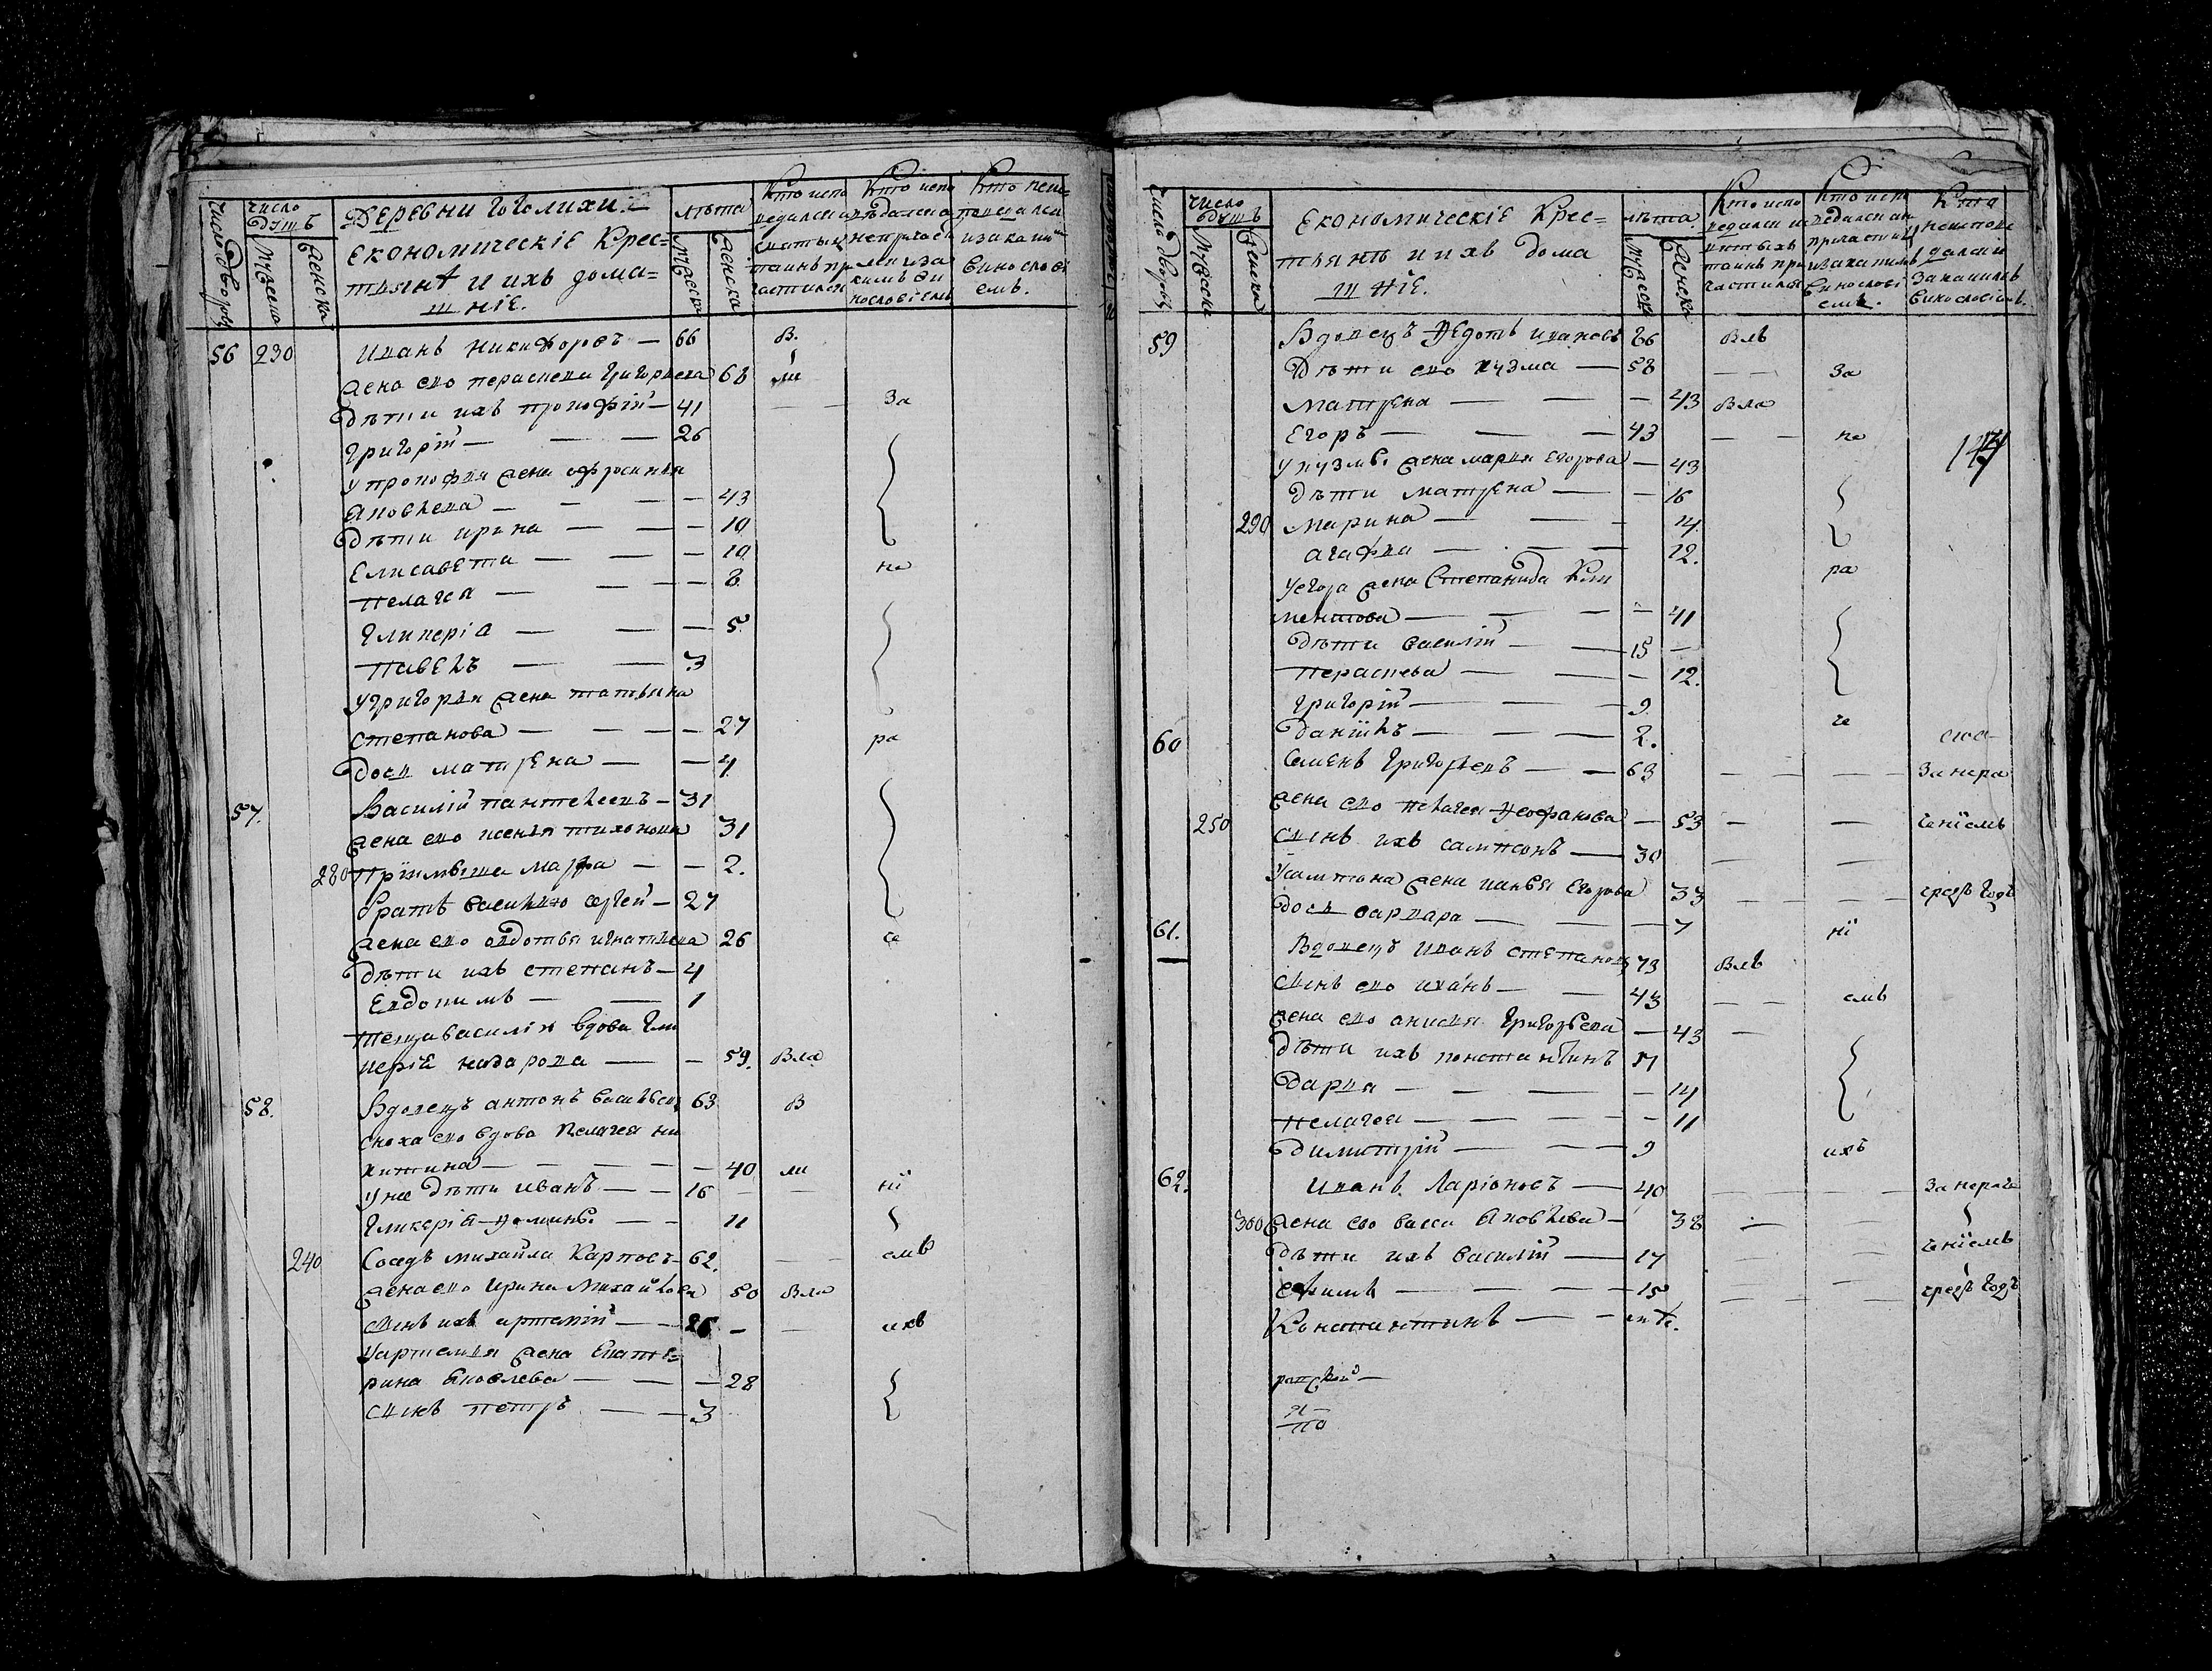 Число дворовъ
число душъ
Мужеска
Женска
Деревни Гоголихи.
Економическіе Крес=
тьянѣ и ихъ дома=
шніе.
лѣта
Мужеска
Женска
Кто испо
ведался и
святыхъ
таинъ при
частился
Кто испо
ведался а
не причас
за
какимъ ви
нословіемъ
Кто неис=
поведался
и за каким
винослові
емъ.
56 230 Иванъ Никифоровъ — 66 В.
жена ево Пераскева Григорьева 68 ли
дѣти ихъ Прокофій — 41 За
Григорій — 26
у Прокофья жена Офросинья
Яковлева — 43
дѣти Ирина — 10
Елисавета — 10 не
Пелагея — 8
Гликеріа — 5
Павелъ — 3
у Григорья жена Татьяна
Степанова — 27 ра
дочь Матрена — 4
57. Василій Пантелеевъ — 31
жена ево Ксенья Тихонова 31
280 Пріимышна Марфа — 2.
братъ Васильио Сергей — 27
жена ево Овдотья Игнатьева 26 че
дѣти ихъ Степанъ — 4
Евдокимъ — 1
теща Василія вдова Гли
керіе Назарова — 59. Вла
58. Вдовецъ Антонъ Васильевъ 63 В
сноха ево вдова Пелагея Ни
китина — 40 ли
у нее дѣти Иванъ — 16 ні
Гликеріа — 11
240 Соседъ Михайла Карповъ — 62. емъ
жена ево Ирина Михайлова 50 Вла
сынъ ихъ Артемій — 26 ихъ
у Артемья жена Екате=
рина Яковлева — 28
сынъ Петръ — 3
Число дворовъ
число душъ
Мужеска
Женска
Економическіе Крес=
тьянѣ и ихъ дома
шніе.
лѣта.
Мужеска
Женска
Кто испо
ведался и с
вятыхъ
таинъ при
частился
Кто исп
ведался а не
причастил
за какимъ
винослові
емъ.
Кто
неиспове
дался и
за какимъ
винословіемъ.
59 Вдовецъ Федотъ Ивановъ 86 Влъ
дѣти ево Кузма — 58 За
Матрена — 43 Вла
Егоръ — 43 не
у Кузмы жена Марья Егорова — 43
дѣти Матрена — 16
290 Марина — 14.
Агафья — 12. ра
у Егора жена Степанида Кли
ментова — 41
дѣти Василій — 15
Пераскева — 12.
Григорій — 9
Даніилъ — 2. че
60 Семенъ Григорьевъ — 63 За нера
250 жена ево Пелагея Феофанова — 53 ченіемъ
сынъ ихъ Сампсонъ — 30
у Сампсона жена Егорова 33 чрезъ годъ
дочь Варвара — 7 ні
61. Вдовецъ Иванъ Степановъ 73 Влъ
сынъ ево Иванъ — 43 емъ
жена ево Анисья Григорьева — 43
дѣти ихъ Константинъ 17
Дарья — 14
Пелагея — 11
Димитрій — 9 ихъ
62. Иванъ Ларіоновъ — 40 За нераче
300 жена ево Васса Яковлева — 38
дѣти ихъ Василій — 17 ченіемъ
Ефимъ — 15 чрезъ годъ
Константинъ —